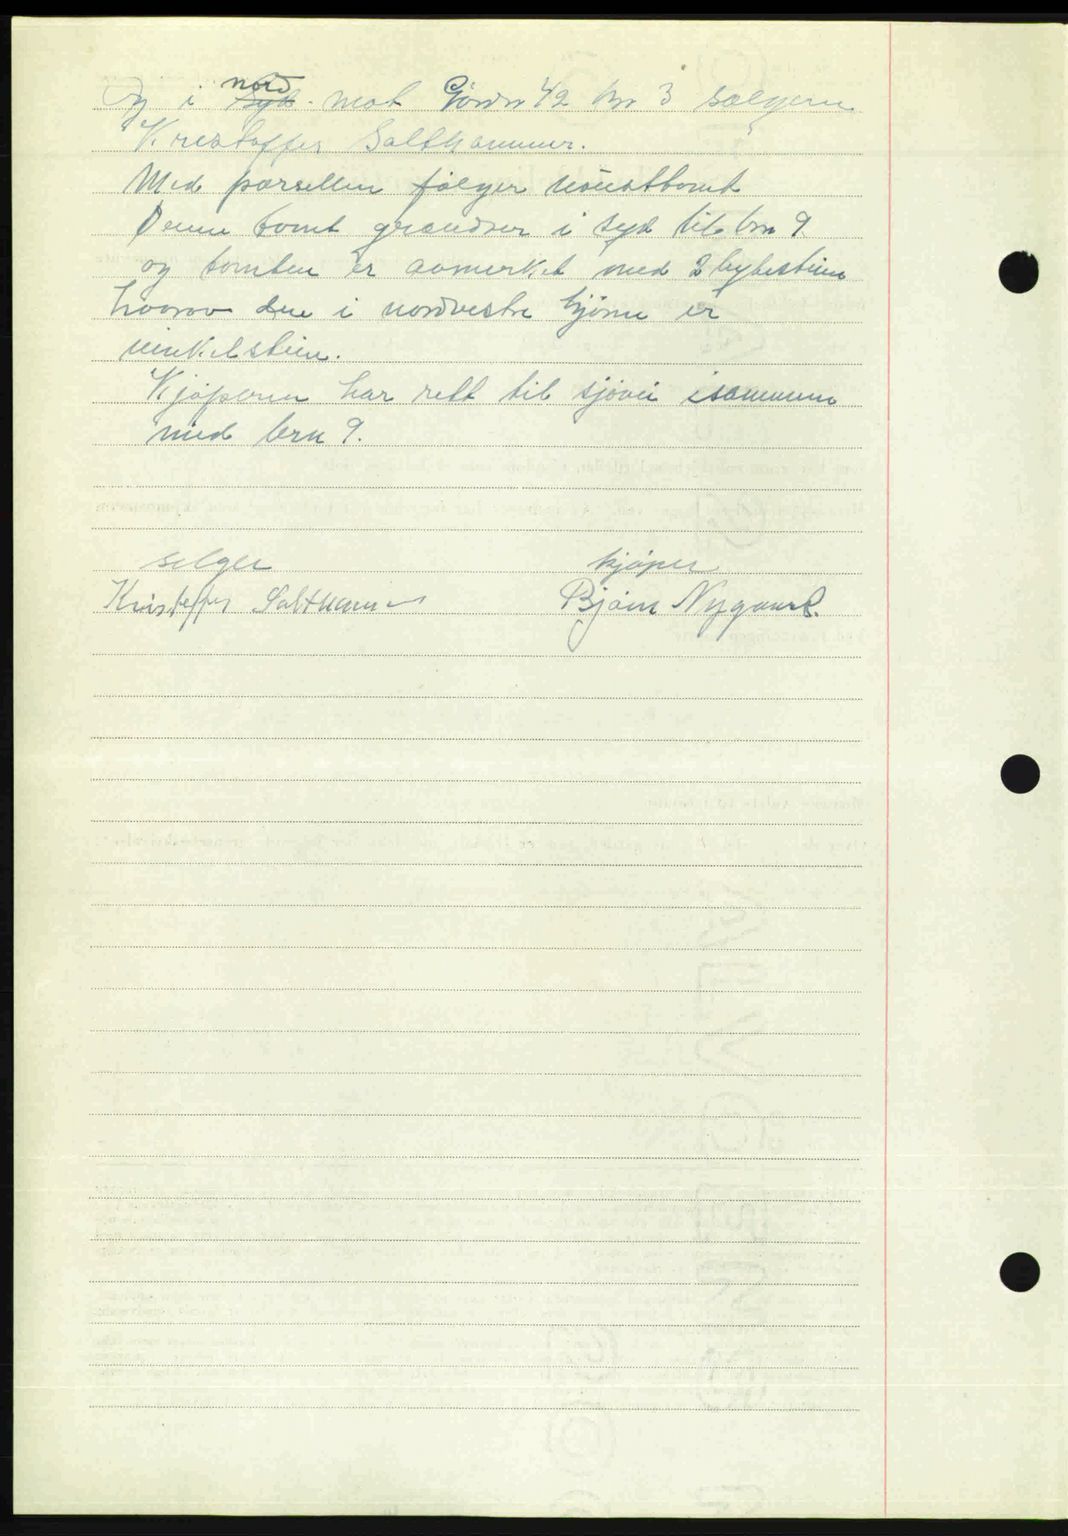 Og i nord syd. mot Gårdsnr 42 bnr 3 sælgeren
Kristoffer Salthammer.
Med parsellen følger nausttomt
Denne tomt grændser i syd til bnr 9.
og tomten er avmerket med 2 bytesteine
hvorav den i nordvestre hjørne er
vinkelstein.
Kjøperen har rett til sjøvei isammen
med bru 9.
selger kjøper
Kristoffer Salthammer Bjørn Nygaard.